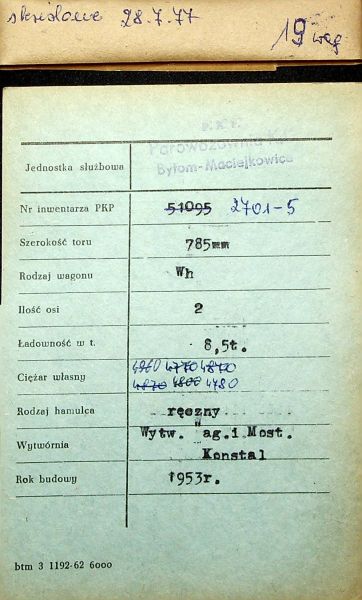 skreślone 28.7.77
19 wag
P.K.P.
Parowozownia Kl.
Bytom-Maciejkowice
Jednostka służbowa
Nr inwentarza PKP 51095 2701-5
Szerokość toru 785mm
Rodzaj wagonu Wh
Ilość osi 2
Ładowność w t. 8,5t.
4960 4770 4840
Ciężar własny 4870 4800 4780
Rodzaj hamulca ręczny
Wytwórnia Wytw. Wag.i Most.
Konstal
Rok budowy 1953r.
btm 3 1192-62 6000